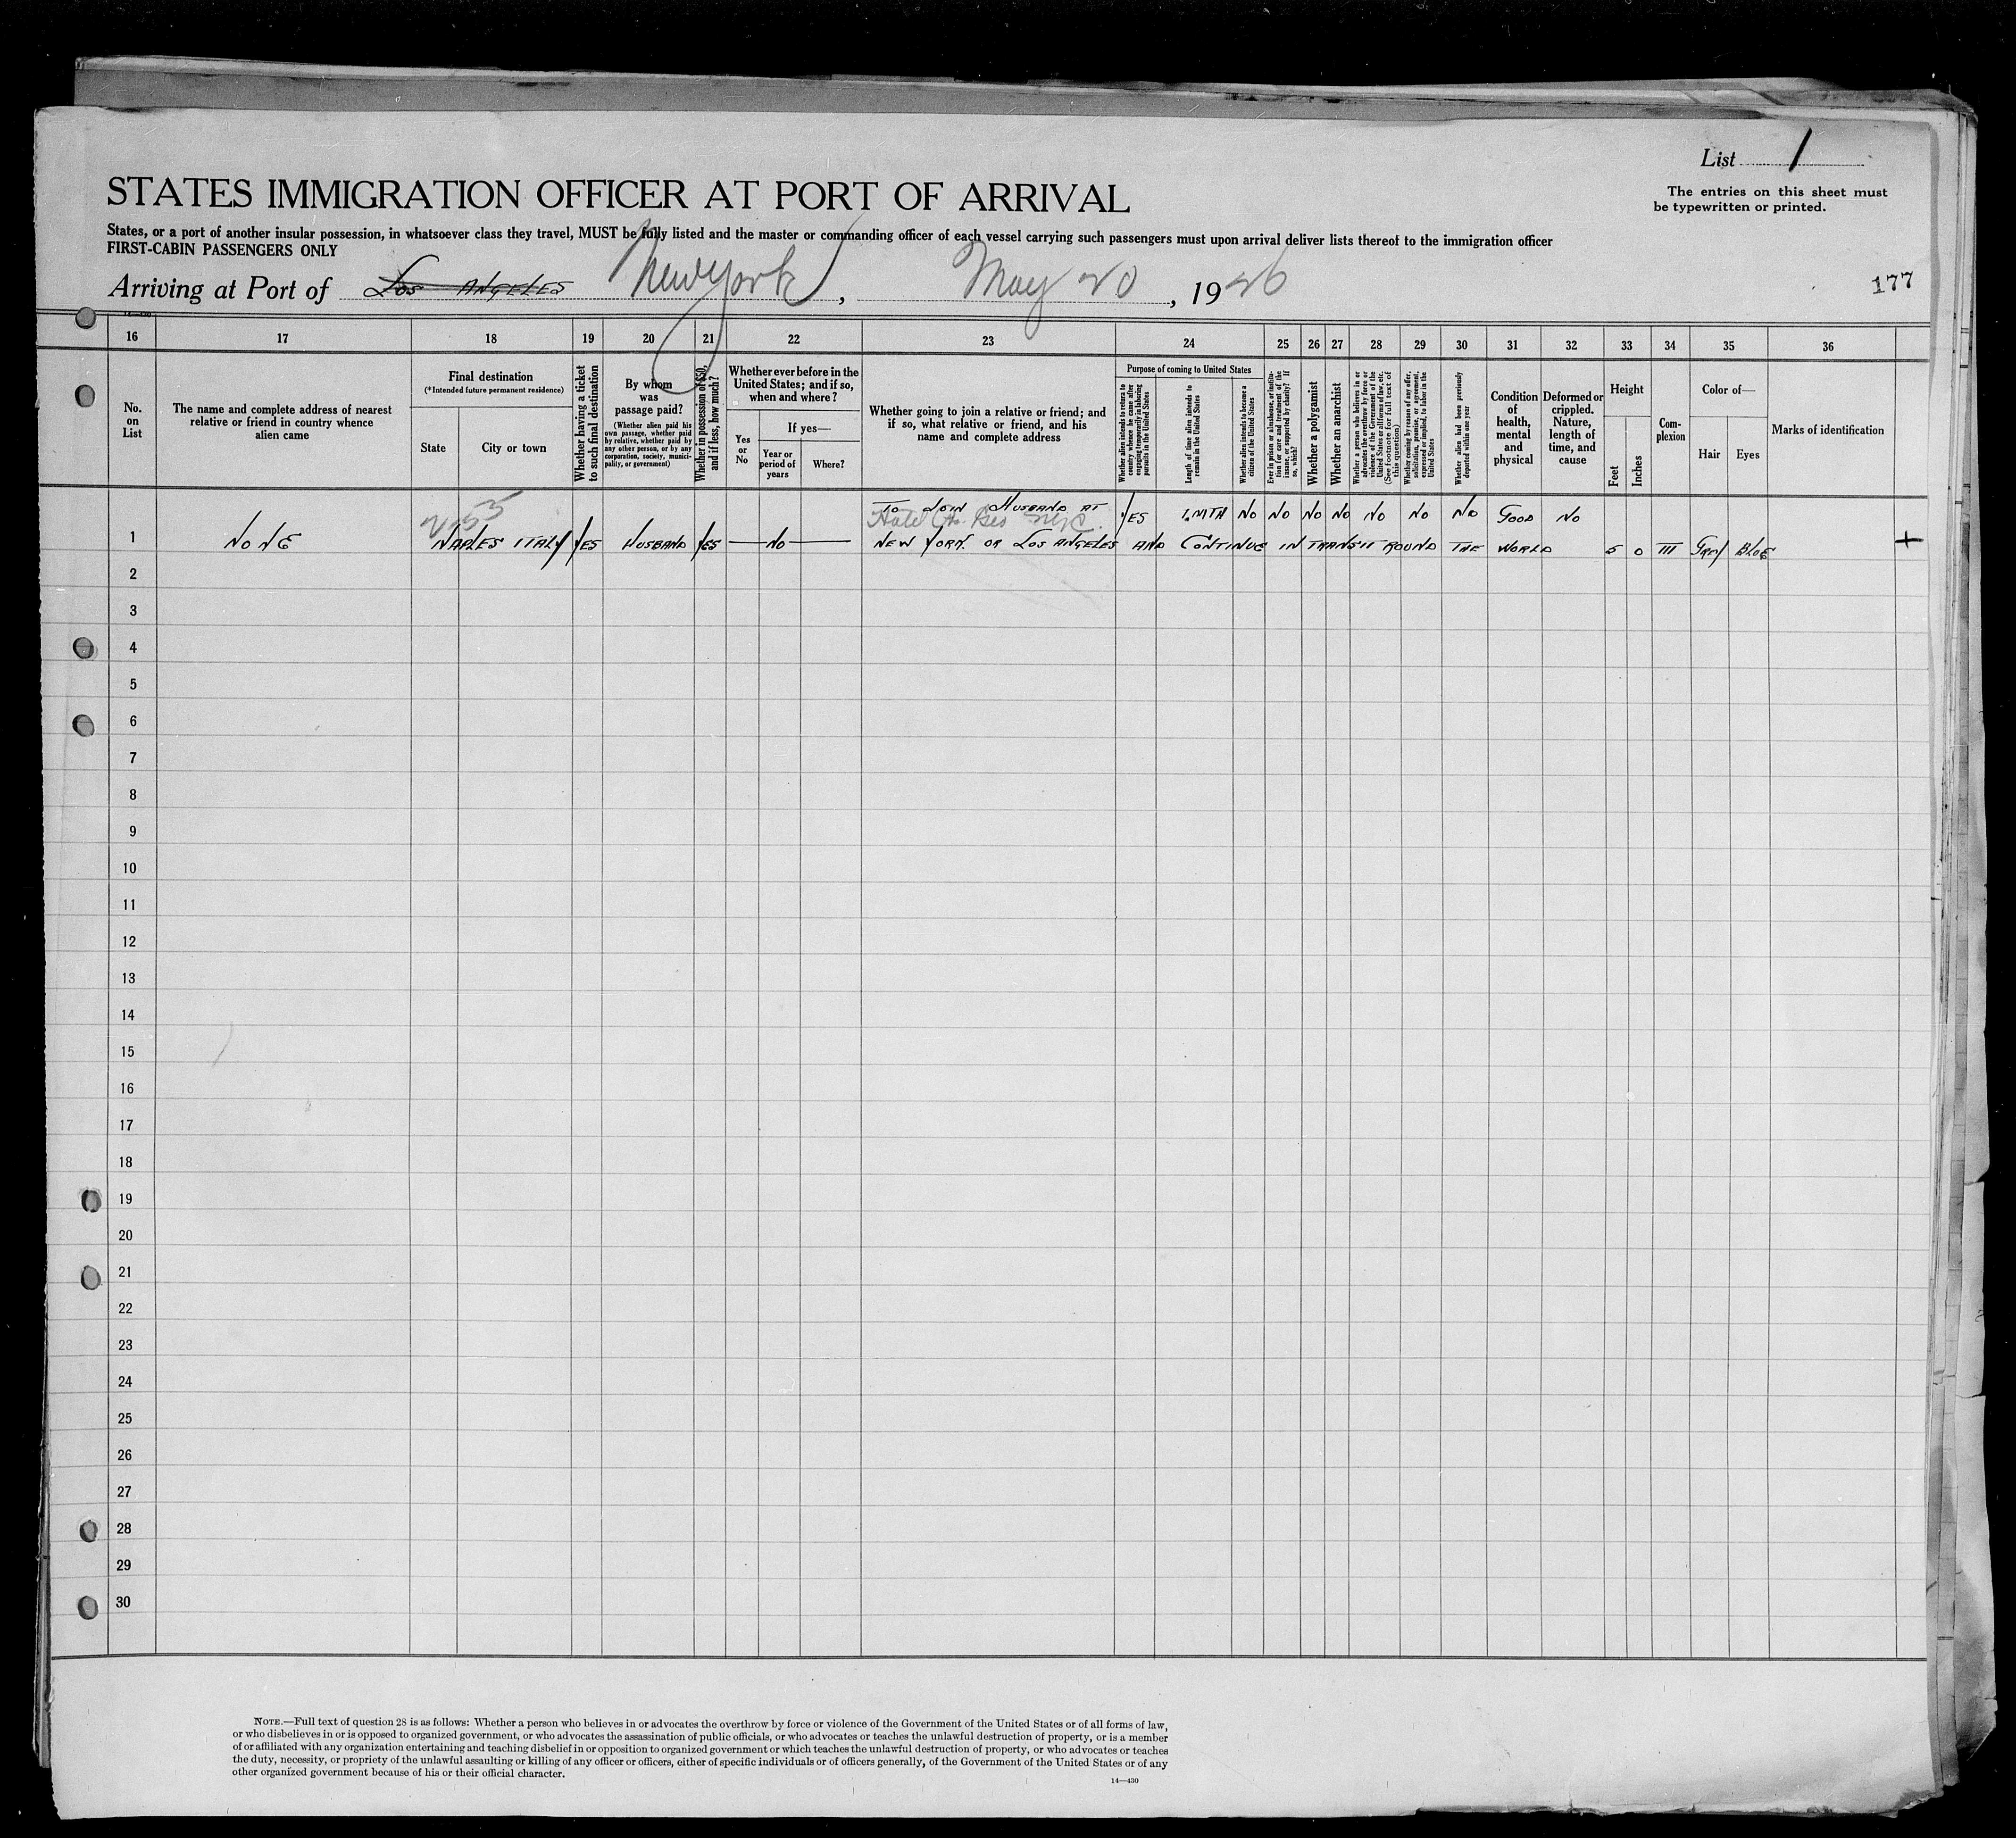 List 1
STATES IMMIGRATION OFFICER AT PORT OF ARRIVAL
The entries on this sheet must
be typewritten or printed.
States, or a port of another insular possession, in whatsoever class they travel, MUST be fully listed and the master or commanding officer of each vessel carrying such passengers must upon arrival deliver lists thereof to the immigration officer
FIRST-CABIN PASSENGERS ONLY
Arriving at Port of Los Angeles New York, May 20, 1926
177
16 17 18 19 20 21 22 23 24 25 26 27 28 29 30 31 32 33 34 35 36
No. on List
The name and complete address of nearest relative or friend in country whence alien came
Final destination
(*Intended future permanent residence)
State
City or town
Whether having a ticket to such final destination
By whom was passage paid?
(Whether alien paid his own passage, whether paid by relative, whether paid by any other person, or by any corporation, society, municipality, or government)
Whether in possession of $50, and if less, how much?
Whether ever before in the United States; and if so, when and where?
Yes or No
If yes—
Year or period of years
Where?
Whether going to join a relative or friend; and if so, what relative or friend, and his name and complete address
Purpose of coming to United States
Whether alien intends to return to country whence he came after engaging temporarily in laboring pursuits in the United States
Length of time alien intends to remain in the United States
Whether alien intends to become a citizen of the United States
Ever in prison or almshouse, or institution for care and treatment of the insane, or supported by charity? If so, which?
Whether a polygamist
Whether an anarchist
Whether a person who believes in or advocates the overthrow by force or violence of the Government of the United States or all forms of law, etc. (See footnote for full text of this question)
Whether coming by reason of any offer, solicitation, promise, or agreement, expressed or implied, to labor in the United States
Whether alien had been previously deported within one year
Condition of health, mental and physical
Deformed or crippled. Nature, length of time, and cause
Height
Feet
Inches
Complexion
Color of—
Hair
Eyes
Marks of identification
TO JOIN HUSBAND AT YES 1.MTH NO NO NO NO NO NO NO GOOD NO
1 NONE NAPLES ITALY YES HUSBAND YES — NO — NEW YORK. OR LOS ANGELES AND CONTINUE IN TRANSIT ROUND THE WORLD 5 0 GREY BLUE +
2
3
4
5
6
7
8
9
10
11
12
13
14
15
16
17
18
19
20
21
22
23
24
25
26
27
28
29
30
NOTE.—Full text of question 28 is as follows: Whether a person who believes in or advocates the overthrow by force or violence of the Government of the United States or of all forms of law,
or who disbelieves in or is opposed to organized government, or who advocates the assassination of public officials, or who advocates or teaches the unlawful destruction of property, or is a member
of or affiliated with any organization entertaining and teaching disbelief in or opposition to organized government or which teaches the unlawful destruction of property, or who advocates or teaches
the duty, necessity, or propriety of the unlawful assaulting or killing of any officer or officers, either of specific individuals or of officers generally, of the Government of the United States or of any
other organized government because of his or their official character.
14—430